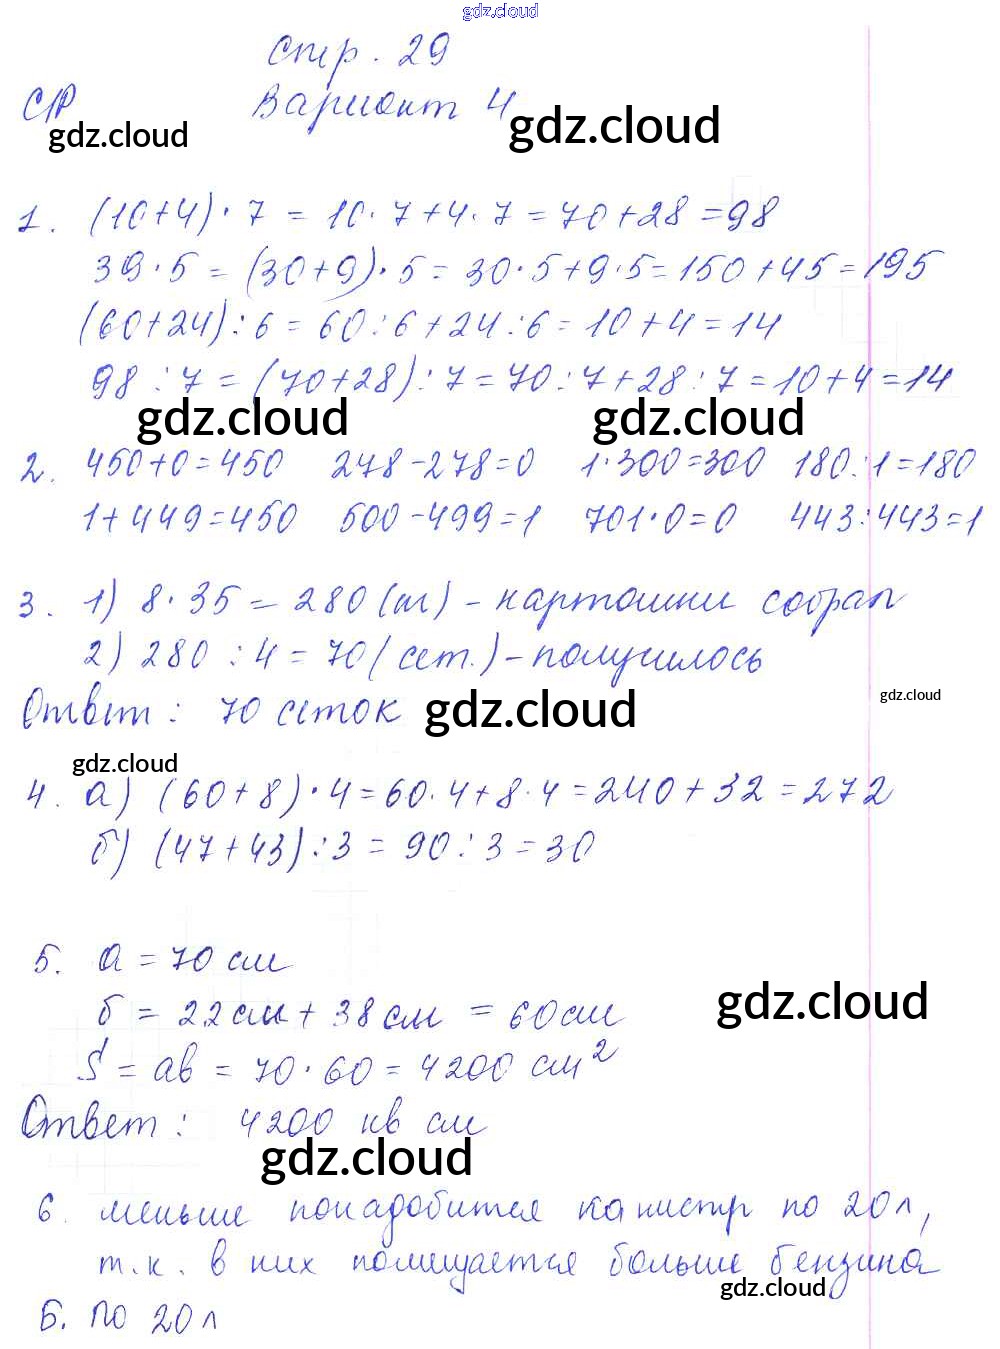 gdz.cloud
Стр. 29
С/Р Вариант 4
gdz.cloud gdz.cloud
1. (10+4)·7 = 10·7+4·7 = 70+28 = 98
39·5 = (30+9)·5 = 30·5+9·5 = 150+45 = 195
(60+24):6 = 60:6+24:6 = 10+4 = 14
98:7 = (70+28):7 = 70:7+28:7 = 10+4 = 14
gdz.cloud gdz.cloud
2. 450+0=450 278-278=0 1·300=300 180:1=180
1+449=450 500-499=1 701·0=0 443:443=1
3. 1) 8·35 = 280 (м) - картошки собрал
2) 280:4 = 70 (сет.) - получилось
Ответ: 70 сеток gdz.cloud gdz.cloud
gdz.cloud
4. а) (60+8)·4 = 60·4+8·4 = 240+32 = 272
б) (47+43):3 = 90:3 = 30
5. а = 70 см
б = 22 см + 38 см = 60 см
gdz.cloud
S = ав = 70·60 = 4200 см²
Ответ: 4200 кв см
gdz.cloud
6. меньше понадобится канистр по 20 л,
т.к. в них помещается больше бензина
gdz.cloud
Б. по 20 л